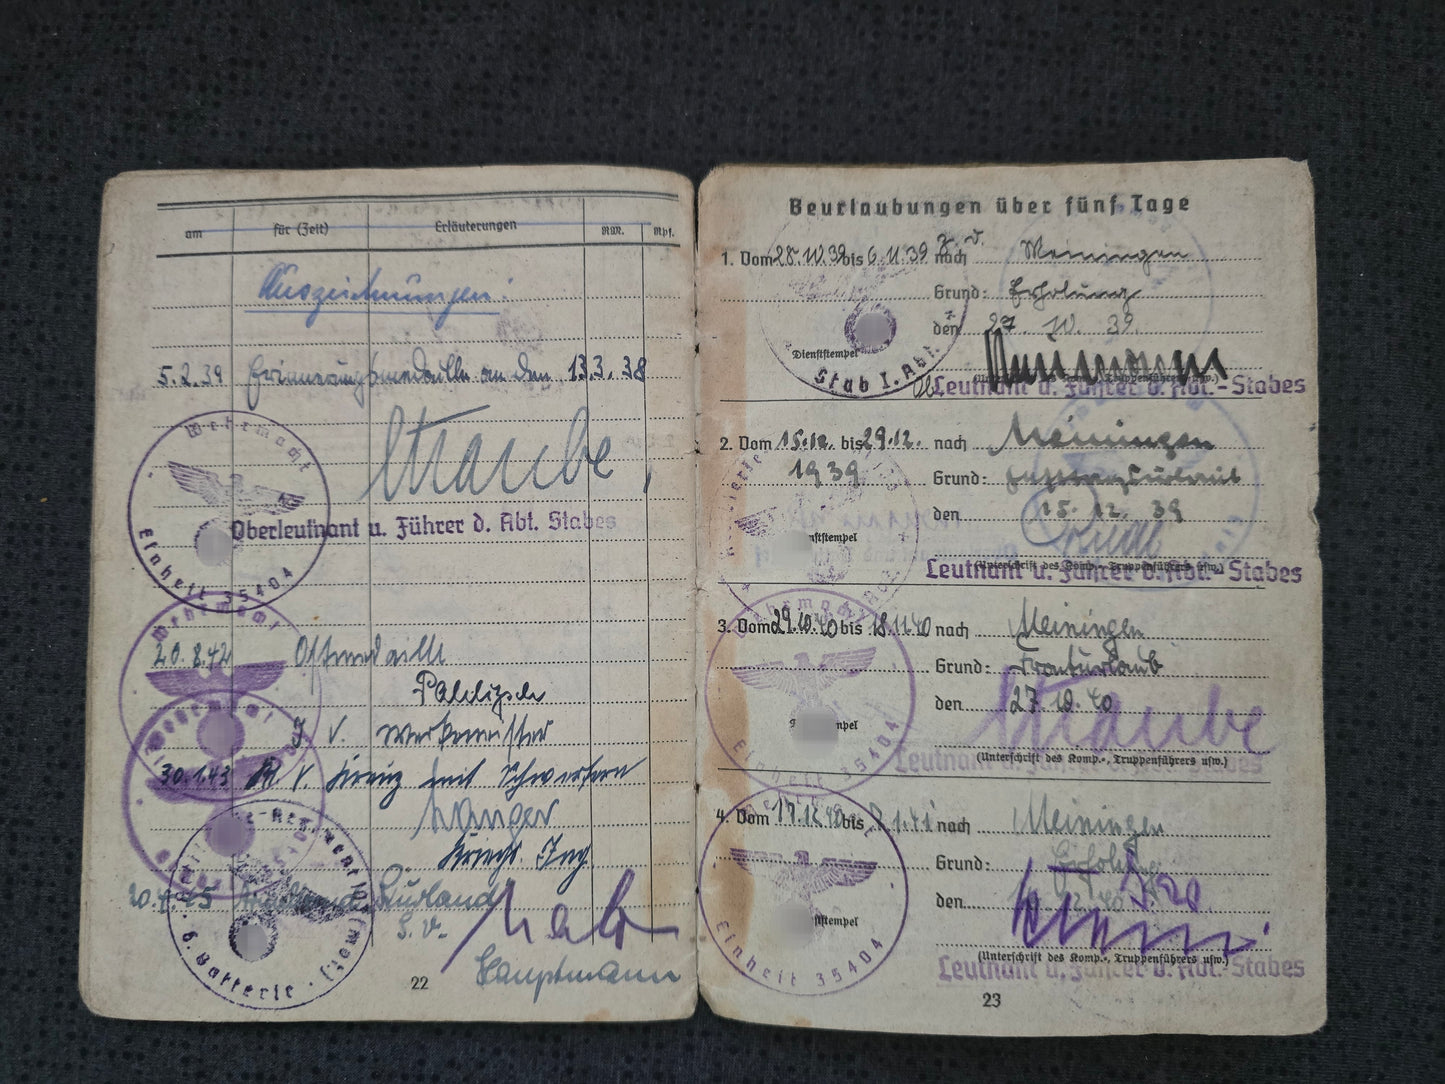 am für (Zeit) Erläuterungen RM. Rpf.
Auszeichnungen:
5.2.39 Erinnerungsmedaille an den 13.3.38
Straube
Wehrmacht
Einheit 35404
Oberleutnant u. Führer d. Abt. Stabes
Wehrmacht
20.8.42 Ostmedaille
I. V. Werkmeister
30.1.43 Kr. V. Kreuz mit Schwertern
Kriegs. Ing.
20.4.45 Kurland
6. Batterie
Hauptmann
22
Beurlaubungen über fünf Tage
1. Vom 28.10.39 bis 6.11.39 nach Meiningen
Grund: Erholung
den 27. 10. 39.
Dienststempel
Stab I. Abt.
Leutnant u. Führer d. Abt.-Stabes
2. Vom 15.12. bis 29.12. nach Meiningen
1939
Grund:
den 15. 12. 39
(Unterschrift des Komp.-, Truppenführers usw.)
Leutnant u. Führer d. Abt.-Stabes
3. Vom 29.10.40 bis 18.11.40 nach Meiningen
Wehrmacht
Grund: Fronturlaub
den 27.10.40
Straube
Einheit 35404
(Unterschrift des Komp.-, Truppenführers usw.)
Leutnant u. Führer d. Abt.-Stabes
4. Vom 17.12.40 bis 2.1.41 nach Meiningen
Grund: Erholung
den
Einheit 35404
(Unterschrift des Komp.-, Truppenführers usw.)
Leutnant u. Führer d. Abt.-Stabes
23